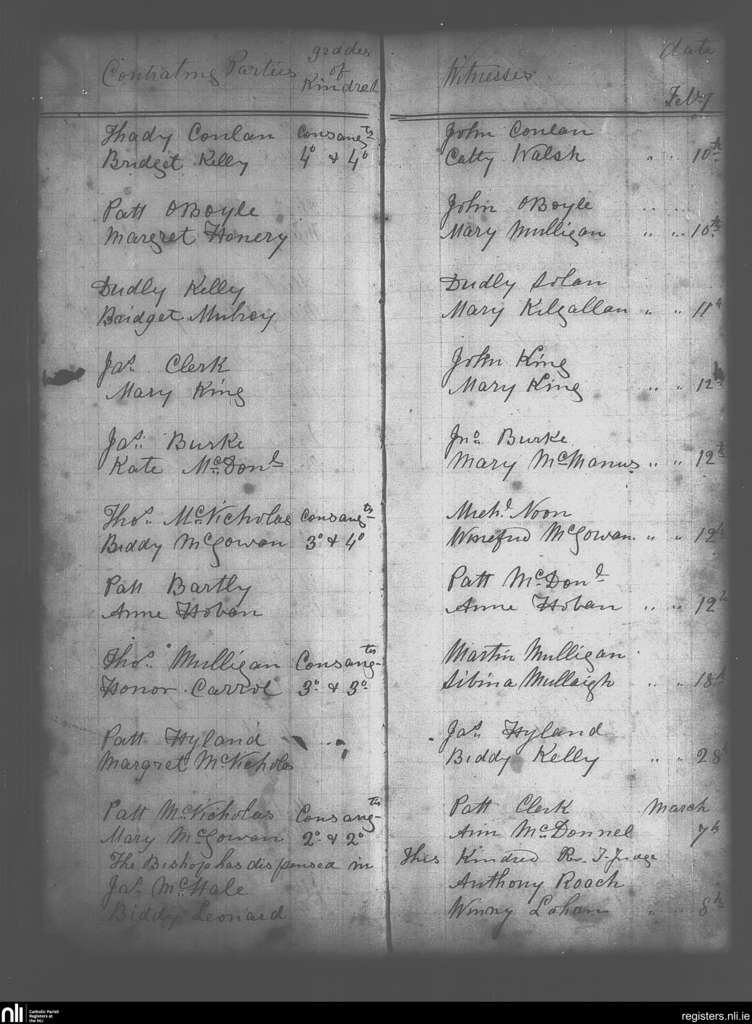 Contrating Parties grades of Kindred Witnesses date
Feb'y
Thady Conlan Consangts John Conlan
Bridget Kelly 4° & 4° Catty Walsh " " 10th
Patt OBoyle John OBoyle
Margret Honery Mary Mulligan " " 10th
Dudly Kelly Dudly Solan
Bridget Mulroy Mary Kilgallan " " 11th
Jas. Clerk John King
Mary King Mary King " " 12th
Jas. Burke Jno. Burke
Kate McDonl Mary McManus " " 12th
Thos. McNicholas Consangts Michl. Noon
Biddy McGowan 3° & 4° Winefred McGowan " " 12th
Patt Bartly Patt McDonl
Anne Hoban Anne Hoban " " 12th
Thos. Mulligan Consangts Martin Mulligan
Honor Carrol 3° & 3° Sibina Mullaigh " " 18th
Patt Hyland Jas. Hyland
Margret McNicholas Biddy Kelly " " 28
Patt McNicholas Consangts Patt Clerk March
Mary McGowan 2° & 2° Ann McDonnel 7th
The Bishop has dispensed in this Kindred Rev. T. Judge
Jas. McHale Anthony Roach
Biddy Leonard Winny Lohan " " 8th
nli Catholic Parish Registers at the NLI
registers.nli.ie